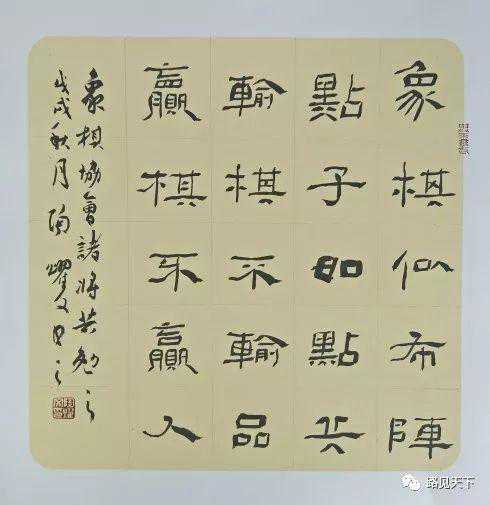 象棋似布陣
點子如點兵
輸棋不輸品
贏棋不贏人
象棋協會諸將共勉之
戊戌秋月陶耀文
路见天下